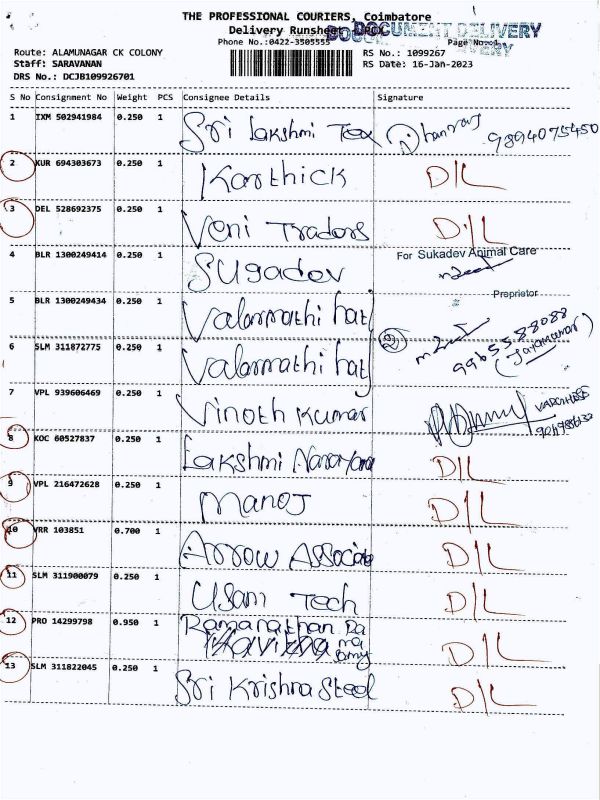 THE PROFESSIONAL COURIERS, Coimbatore
Delivery Runsheet
DOCUMENT DELIVERY
Phone No.:0422-3505555 Page No.:1
Route: ALAMUNAGAR CK COLONY RS No.: 1099267
Staff: SARAVANAN RS Date: 16-Jan-2023
DRS No.: DCJB109926701
S No Consignment No Weight PCS Consignee Details Signature
1 IXM 502941984 0.250 1 Sri Lakshmi Tex Dhanraj 9894075450
2 KUR 694303673 0.250 1 Karthick D/L
3 DEL 528692375 0.250 1 Veni Tradors D/L
4 BLR 1300249414 0.250 1 Sugadev For Sukadev Animal Care
Proprietor
5 BLR 1300249434 0.250 1 Valarmathi hatj
6 SLM 311872775 0.250 1 Valarmathi hatj 9965588088
7 VPL 939606469 0.250 1 Vinoth Kumar
8 KOC 60527837 0.250 1 Lakshmi Narayana D/L
9 VPL 216472628 0.250 1 Manoj D/L
10 VRR 103851 0.700 1 Arrow Associate D/L
11 SLM 311900079 0.250 1 Usam Tech D/L
12 PRO 14299798 0.950 1 Ramanathan Ra D/L
13 SLM 311822045 0.250 1 Sri Krishna Steel D/L